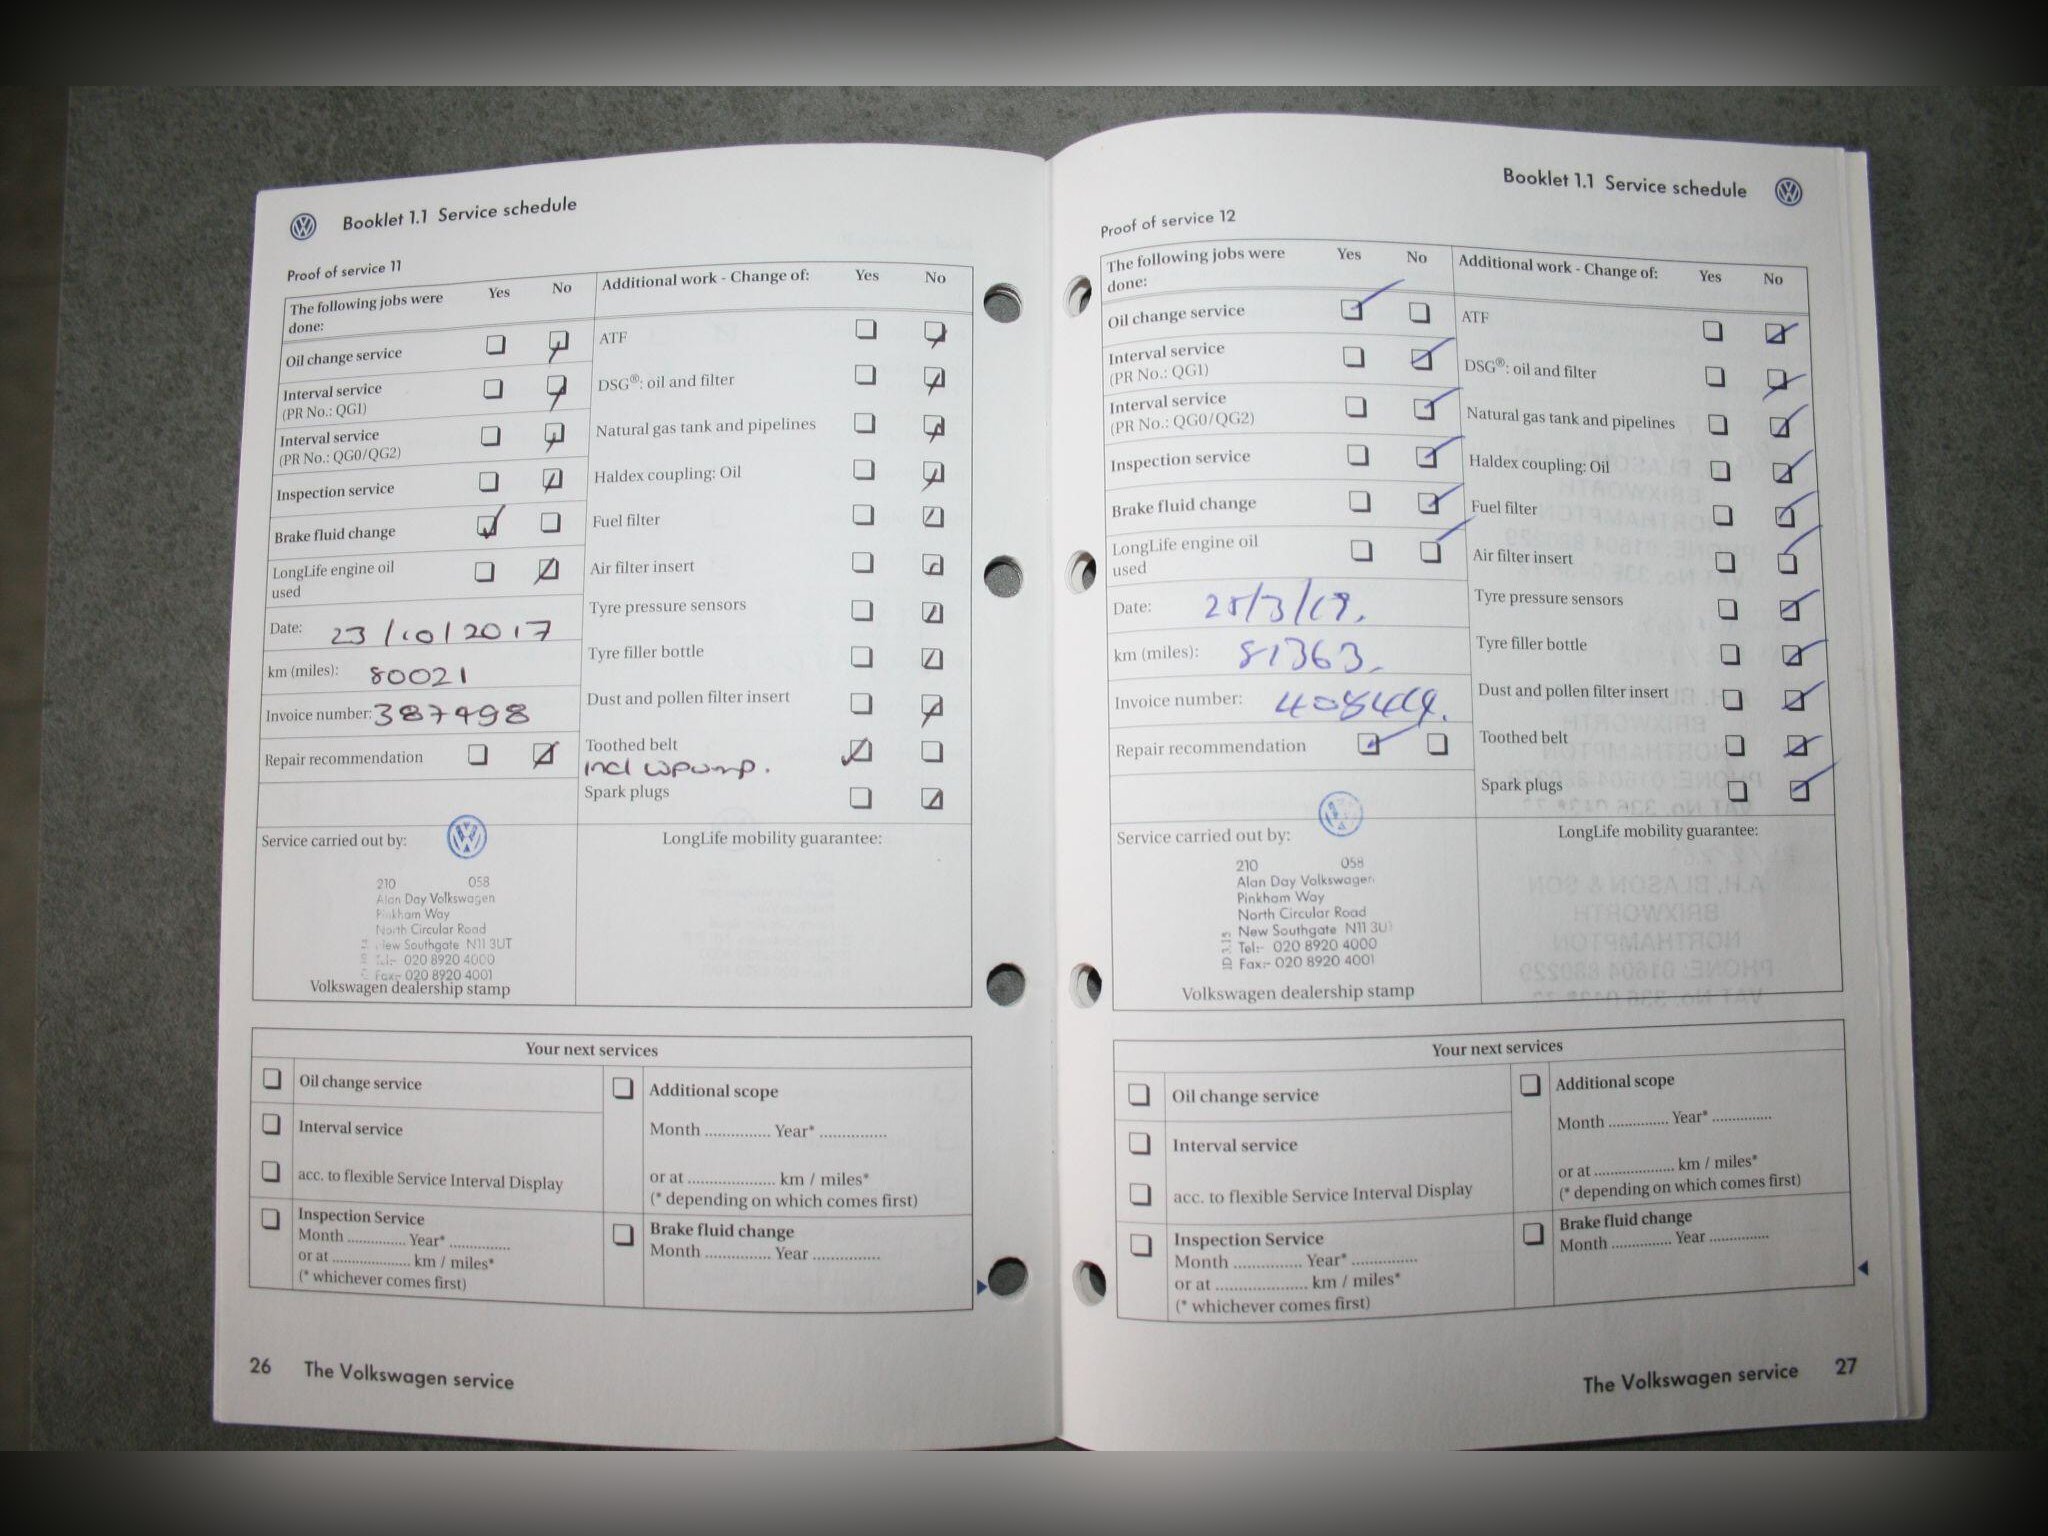 Booklet 1.1 Service schedule
Proof of service 11
The following jobs were done: Yes No
Oil change service
Interval service
(PR No.: QG1)
Interval service
(PR No.: QG0/QG2)
Inspection service
Brake fluid change
LongLife engine oil
used
Date: 23/10/2017
km (miles): 80021
Invoice number: 387498
Repair recommendation
Additional work - Change of: Yes No
ATF
DSG®: oil and filter
Natural gas tank and pipelines
Haldex coupling: Oil
Fuel filter
Air filter insert
Tyre pressure sensors
Tyre filler bottle
Dust and pollen filter insert
Toothed belt
incl wpump.
Spark plugs
Service carried out by:
210 058
Alan Day Volkswagen
Pinkham Way
North Circular Road
New Southgate N11 3UT
Tel:- 020 8920 4000
Fax:- 020 8920 4001
Volkswagen dealership stamp
LongLife mobility guarantee:
Your next services
Oil change service
Interval service
acc. to flexible Service Interval Display
Inspection Service
Month .............. Year* ..............
or at .................... km / miles*
(* whichever comes first)
Additional scope
Month .............. Year* ..............
or at .................... km / miles*
(* depending on which comes first)
Brake fluid change
Month .............. Year ..............
26 The Volkswagen service
Booklet 1.1 Service schedule
Proof of service 12
The following jobs were Yes No
done:
Oil change service
Interval service
(PR No.: QG1)
Interval service
(PR No.: QG0/QG2)
Inspection service
Brake fluid change
LongLife engine oil
used
Date: /3/19.
km (miles): 81363.
Invoice number:
Repair recommendation
Additional work - Change of: Yes No
ATF
DSG®: oil and filter
Natural gas tank and pipelines
Haldex coupling: Oil
Fuel filter
Air filter insert
Tyre pressure sensors
Tyre filler bottle
Dust and pollen filter insert
Toothed belt
Spark plugs
Service carried out by:
210 058
Alan Day Volkswagen
Pinkham Way
North Circular Road
New Southgate N11 3U
Tel:- 020 8920 4000
Fax:- 020 8920 4001
Volkswagen dealership stamp
LongLife mobility guarantee:
Your next services
Oil change service
Interval service
acc. to flexible Service Interval Display
Inspection Service
Month .............. Year* ..............
or at .................... km / miles*
(* whichever comes first)
Additional scope
Month .............. Year* ..............
or at .................... km / miles*
(* depending on which comes first)
Brake fluid change
Month .............. Year ..............
The Volkswagen service 27